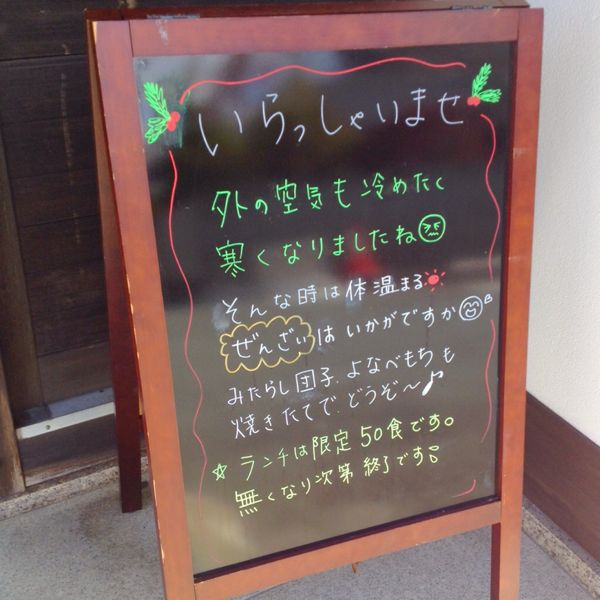 いらっしゃいませ
外の空気も冷めたく
寒くなりましたね
そんな時は体温まる
ぜんざいはいかがですか
みたらし団子、よなべもちも
焼きたてで、どうぞ〜♪
☆ランチは限定50食です。
無くなり次第終了です